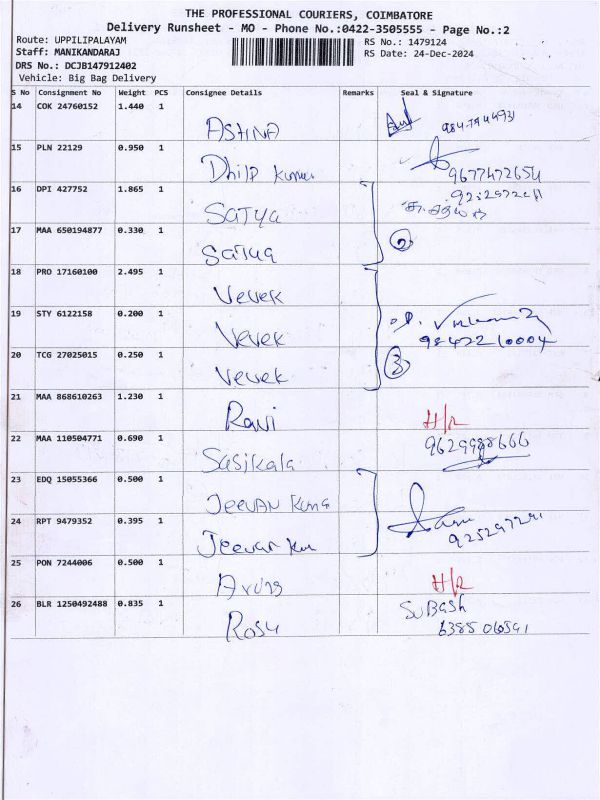 THE PROFESSIONAL COURIERS, COIMBATORE
Delivery Runsheet - MO - Phone No.:0422-3505555 - Page No.:2
Route: UPPILIPALAYAM
Staff: MANIKANDARAJ
DRS No.: DCJB147912402
Vehicle: Big Bag Delivery
RS No.: 1479124
RS Date: 24-Dec-2024
S No Consignment No Weight PCS Consignee Details Remarks Seal & Signature
14 COK 24760152 1.440 1 ASTINA
15 PLN 22129 0.950 1 Dhilp Kumar 9677472654
16 DPI 427752 1.865 1 SATYA
17 MAA 650194877 0.330 1 Satya 2
18 PRO 17160100 2.495 1 Vevek
19 STY 6122158 0.200 1 Vevek 9842210004
20 TCG 27025015 0.250 1 Vevek 3
21 MAA 868610263 1.230 1 Ravi H/R
22 MAA 110504771 0.690 1 Sasikala
23 EDQ 15055366 0.500 1 Jeevan Kuma
24 RPT 9479352 0.395 1 Jeevan Kum
25 PON 7244006 0.500 1 H/R
26 BLR 1250492488 0.835 1 Rosy SuBash